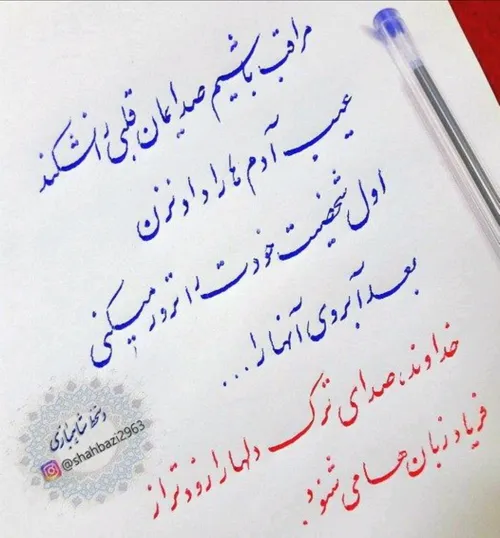 مراقب باشیم صدایمان قلبی را نشکند
عیب آدم ها را داد نزن
اول شخصیت خودت را ترور میکنی
بعد آبروی آنها را...
خداوند، صدای ترک دلها را زودتر از
فریاد زبان ها می شنود.
دستخط شهبازی
@shahbazi2963